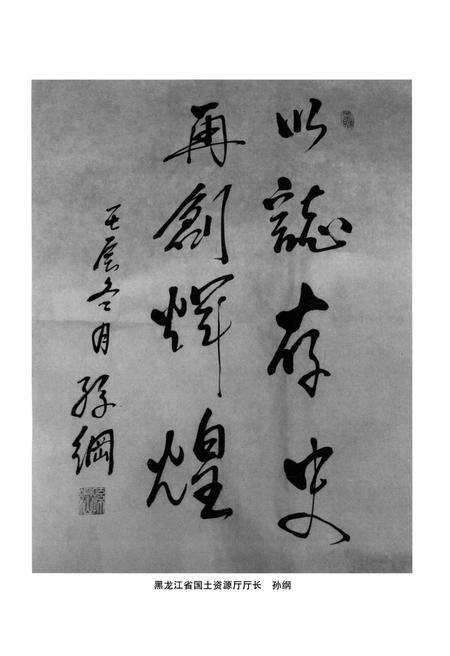 以誌存史
再創輝煌
壬辰冬月
孫綱
黑龙江省国土资源厅厅长　孙纲